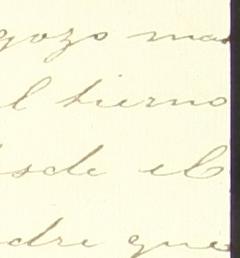 gozo mas
l tierno
sde el
dre que